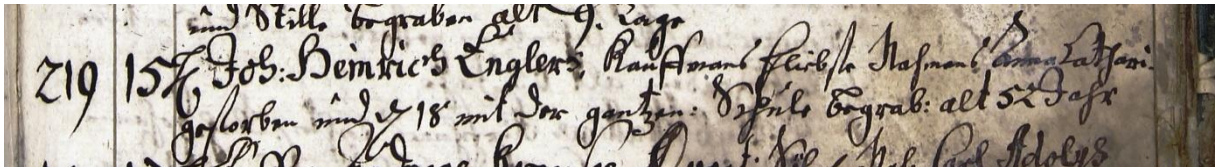 und Stille begraben alt 9. Tage
219 15 Joh: Heinrich Englers, Kauffmans Eliebste Nahmens Anna Cathari-
gestorben und d 18 mit der gantzen: Schule begrab: alt 52 Jahr